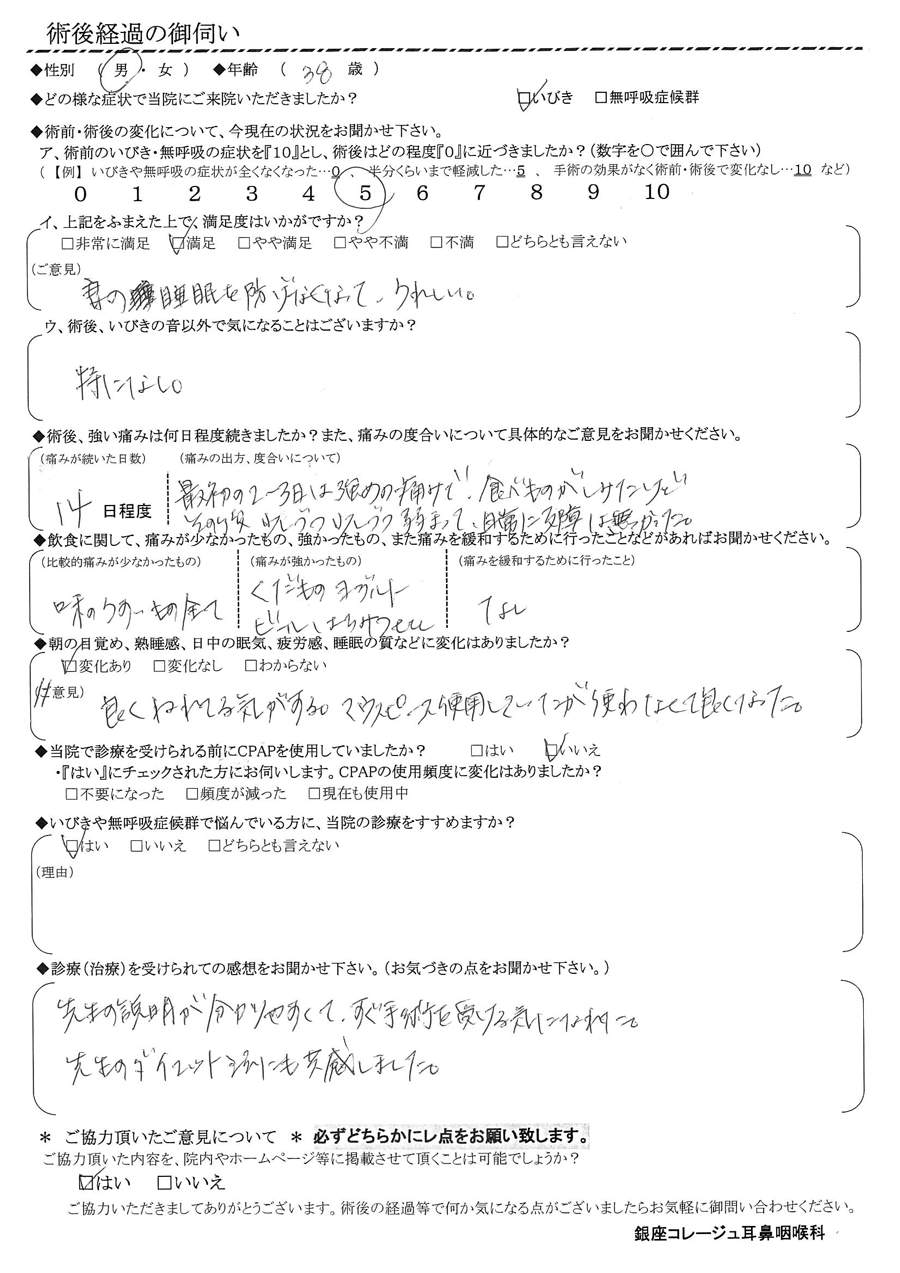 術後経過の御伺い
◆性別 (男・女) ◆年齢 (38歳)
◆どの様な症状で当院にご来院いただきましたか? ☑いびき □無呼吸症候群
◆術前・術後の変化について、今現在の状況をお聞かせ下さい。
ア、術前のいびき・無呼吸の症状を『10』とし、術後はどの程度『0』に近づきましたか?(数字を○で囲んで下さい)
(【例】 いびきや無呼吸の症状が全くなくなった…0 半分くらいまで軽減した…5 、 手術の効果がなく術前・術後で変化なし…10 など)
0 1 2 3 4 5 6 7 8 9 10
イ、上記をふまえた上で、満足度はいかがですか?
□非常に満足 ☑満足 □やや満足 □やや不満 □不満 □どちらとも言えない
(ご意見)
妻の睡眠を防げなくなって、うれしい。
ウ、術後、いびきの音以外で気になることはございますか?
特になし。
◆術後、強い痛みは何日程度続きましたか?また、痛みの度合いについて具体的なご意見をお聞かせください。
(痛みが続いた日数) (痛みの出方、度合いについて)
14 日程度
最初の2~3日は強めの痛みで、食べものがしみたけど
その後少しづつ少しづつ弱まって、日常に支障は無かった。
◆飲食に関して、痛みが少なかったもの、強かったもの、また痛みを緩和するために行ったことなどがあればお聞かせください。
(比較的痛みが少なかったもの) (痛みが強かったもの) (痛みを緩和するために行ったこと)
味のうすいもの全て
くだもの ヨーグルト
ビール
なし
◆朝の目覚め、熟睡感、日中の眠気、疲労感、睡眠の質などに変化はありましたか?
☑変化あり □変化なし □わからない
意見)
良くねれてる気がする。マウスピース使用していたが使わなくて良くなった。
◆当院で診療を受けられる前にCPAPを使用していましたか? □はい ☑いいえ
・『はい』にチェックされた方にお伺いします。CPAPの使用頻度に変化はありましたか?
□不要になった □頻度が減った □現在も使用中
◆いびきや無呼吸症候群で悩んでいる方に、当院の診療をすすめますか?
☑はい □いいえ □どちらとも言えない
(理由)
◆診療(治療)を受けられての感想をお聞かせ下さい。(お気づきの点をお聞かせ下さい。)
先生の説明が分かりやすくて、すぐ手術を受ける気になれた。
先生のダイエット話にも共感しました。
* ご協力頂いたご意見について * 必ずどちらかにレ点をお願い致します。
ご協力頂いた内容を、院内やホームページ等に掲載させて頂くことは可能でしょうか?
☑はい □いいえ
ご協力いただきましてありがとうございます。術後の経過等で何か気になる点がございましたらお気軽に御問い合わせください。
銀座コレージュ耳鼻咽喉科